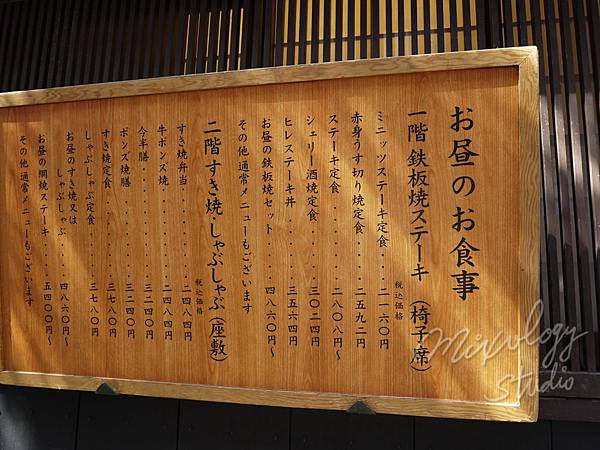 お昼のお食事
一階 鉄板焼ステーキ (椅子席)
税込価格
ミニッツステーキ定食・・・二一六〇円
赤身うす切り焼定食・・・二五九二円
ステーキ定食・・・・・二八〇八円〜
シェリー酒焼定食・・・・三〇二四円
ヒレステーキ丼・・・・・三五六四円
お昼の鉄板焼セット・・・・四八六〇円〜
その他通常メニューもございます
二階 すき焼・しゃぶしゃぶ (座敷)
税込価格
すき焼弁当・・・・・・・二四八四円
牛ポンズ焼・・・・・・・二四八四円
今半膳・・・・・・・・・三二四〇円
ポンズ焼膳・・・・・・・三二四〇円
すき焼定食・・・・・・・三七八〇円
しゃぶしゃぶ定食・・・・三七八〇円
お昼のすき焼又は
しゃぶしゃぶ・・・・四八六〇円〜
お昼の網焼ステーキ・・・・五四〇〇円〜
その他通常メニューもございます
Mixology
Studio